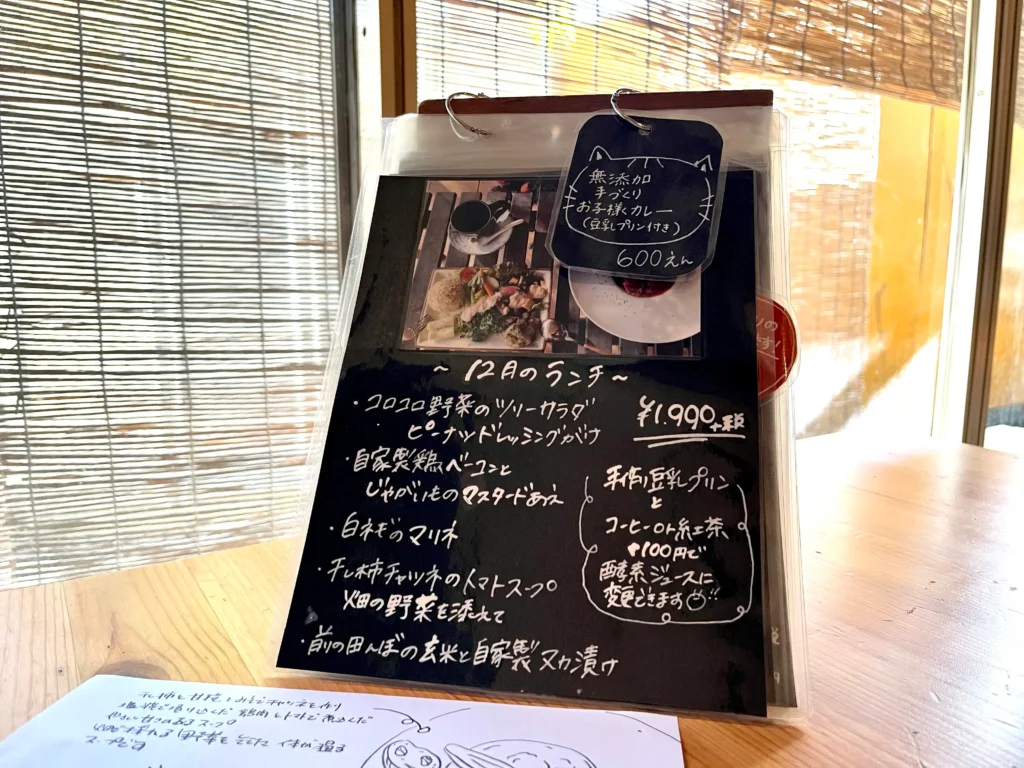 無添加
手づくり
お子様カレー
(豆乳プリン付き)
600えん
~12月のランチ~
・コロコロ野菜のツリーサラダ
ピーナッツドレッシングがけ
¥1.990+税
・自家製鶏ベーコンと
じゃがいものマスタードあえ
・白ネギのマリネ
・干し柿チャツネのトマトスープ
畑の野菜を添えて
・前の田んぼの玄米と自家製ヌカ漬け
手作り豆乳プリン
と
コーヒーor紅茶
+100円で
酵素ジュースに
変更できます!!
スープです